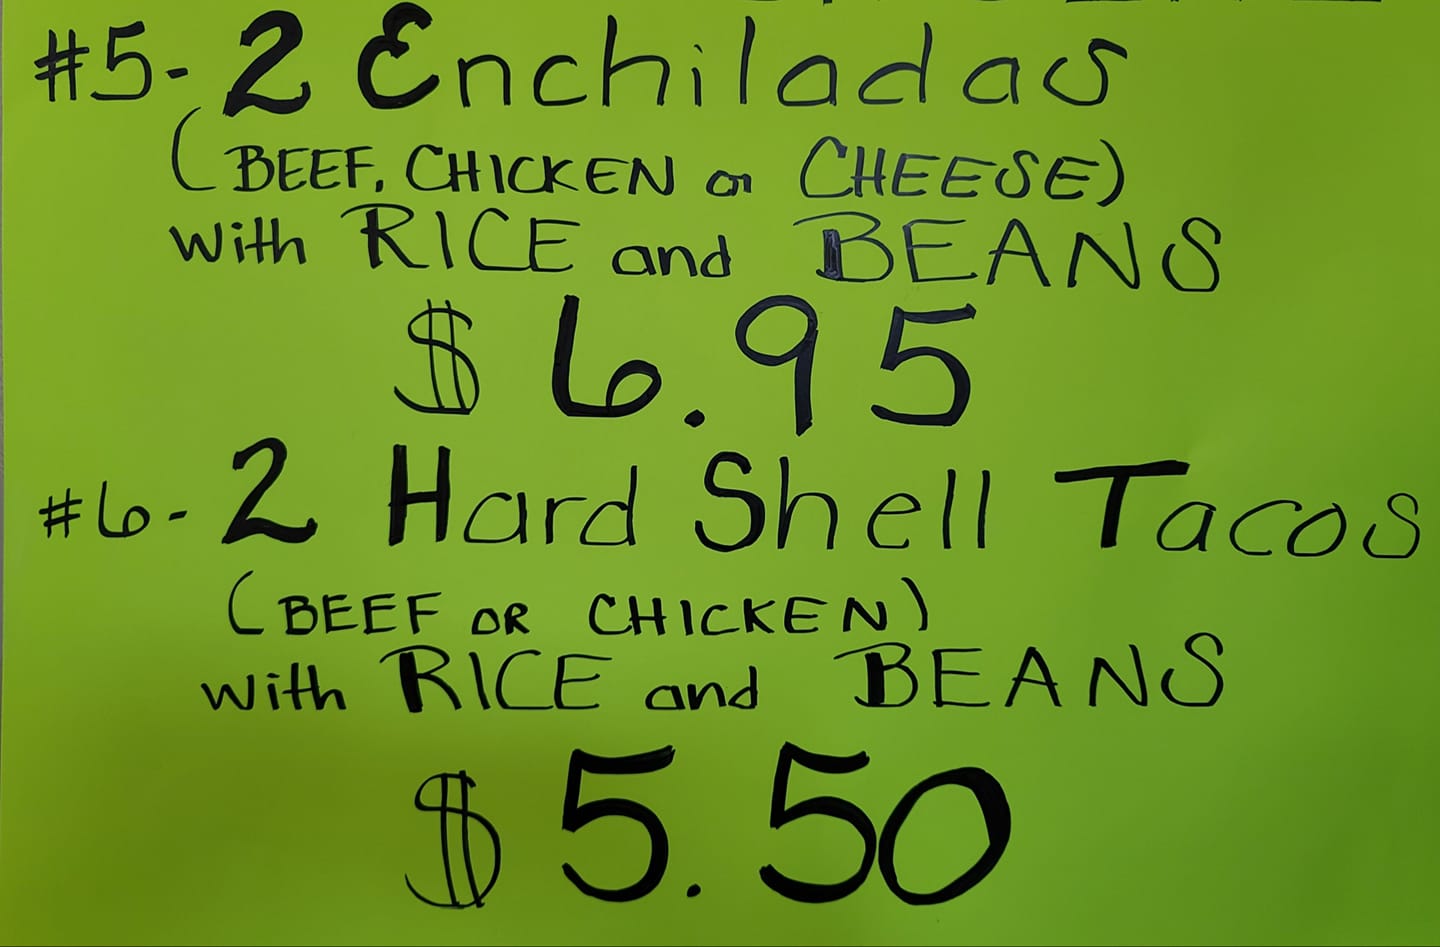 #5- 2 Enchiladas
(BEEF, CHICKEN or CHEESE)
with RICE and BEANS
$6.95
#6- 2 Hard Shell Tacos
(BEEF OR CHICKEN)
with RICE and BEANS
$5.50